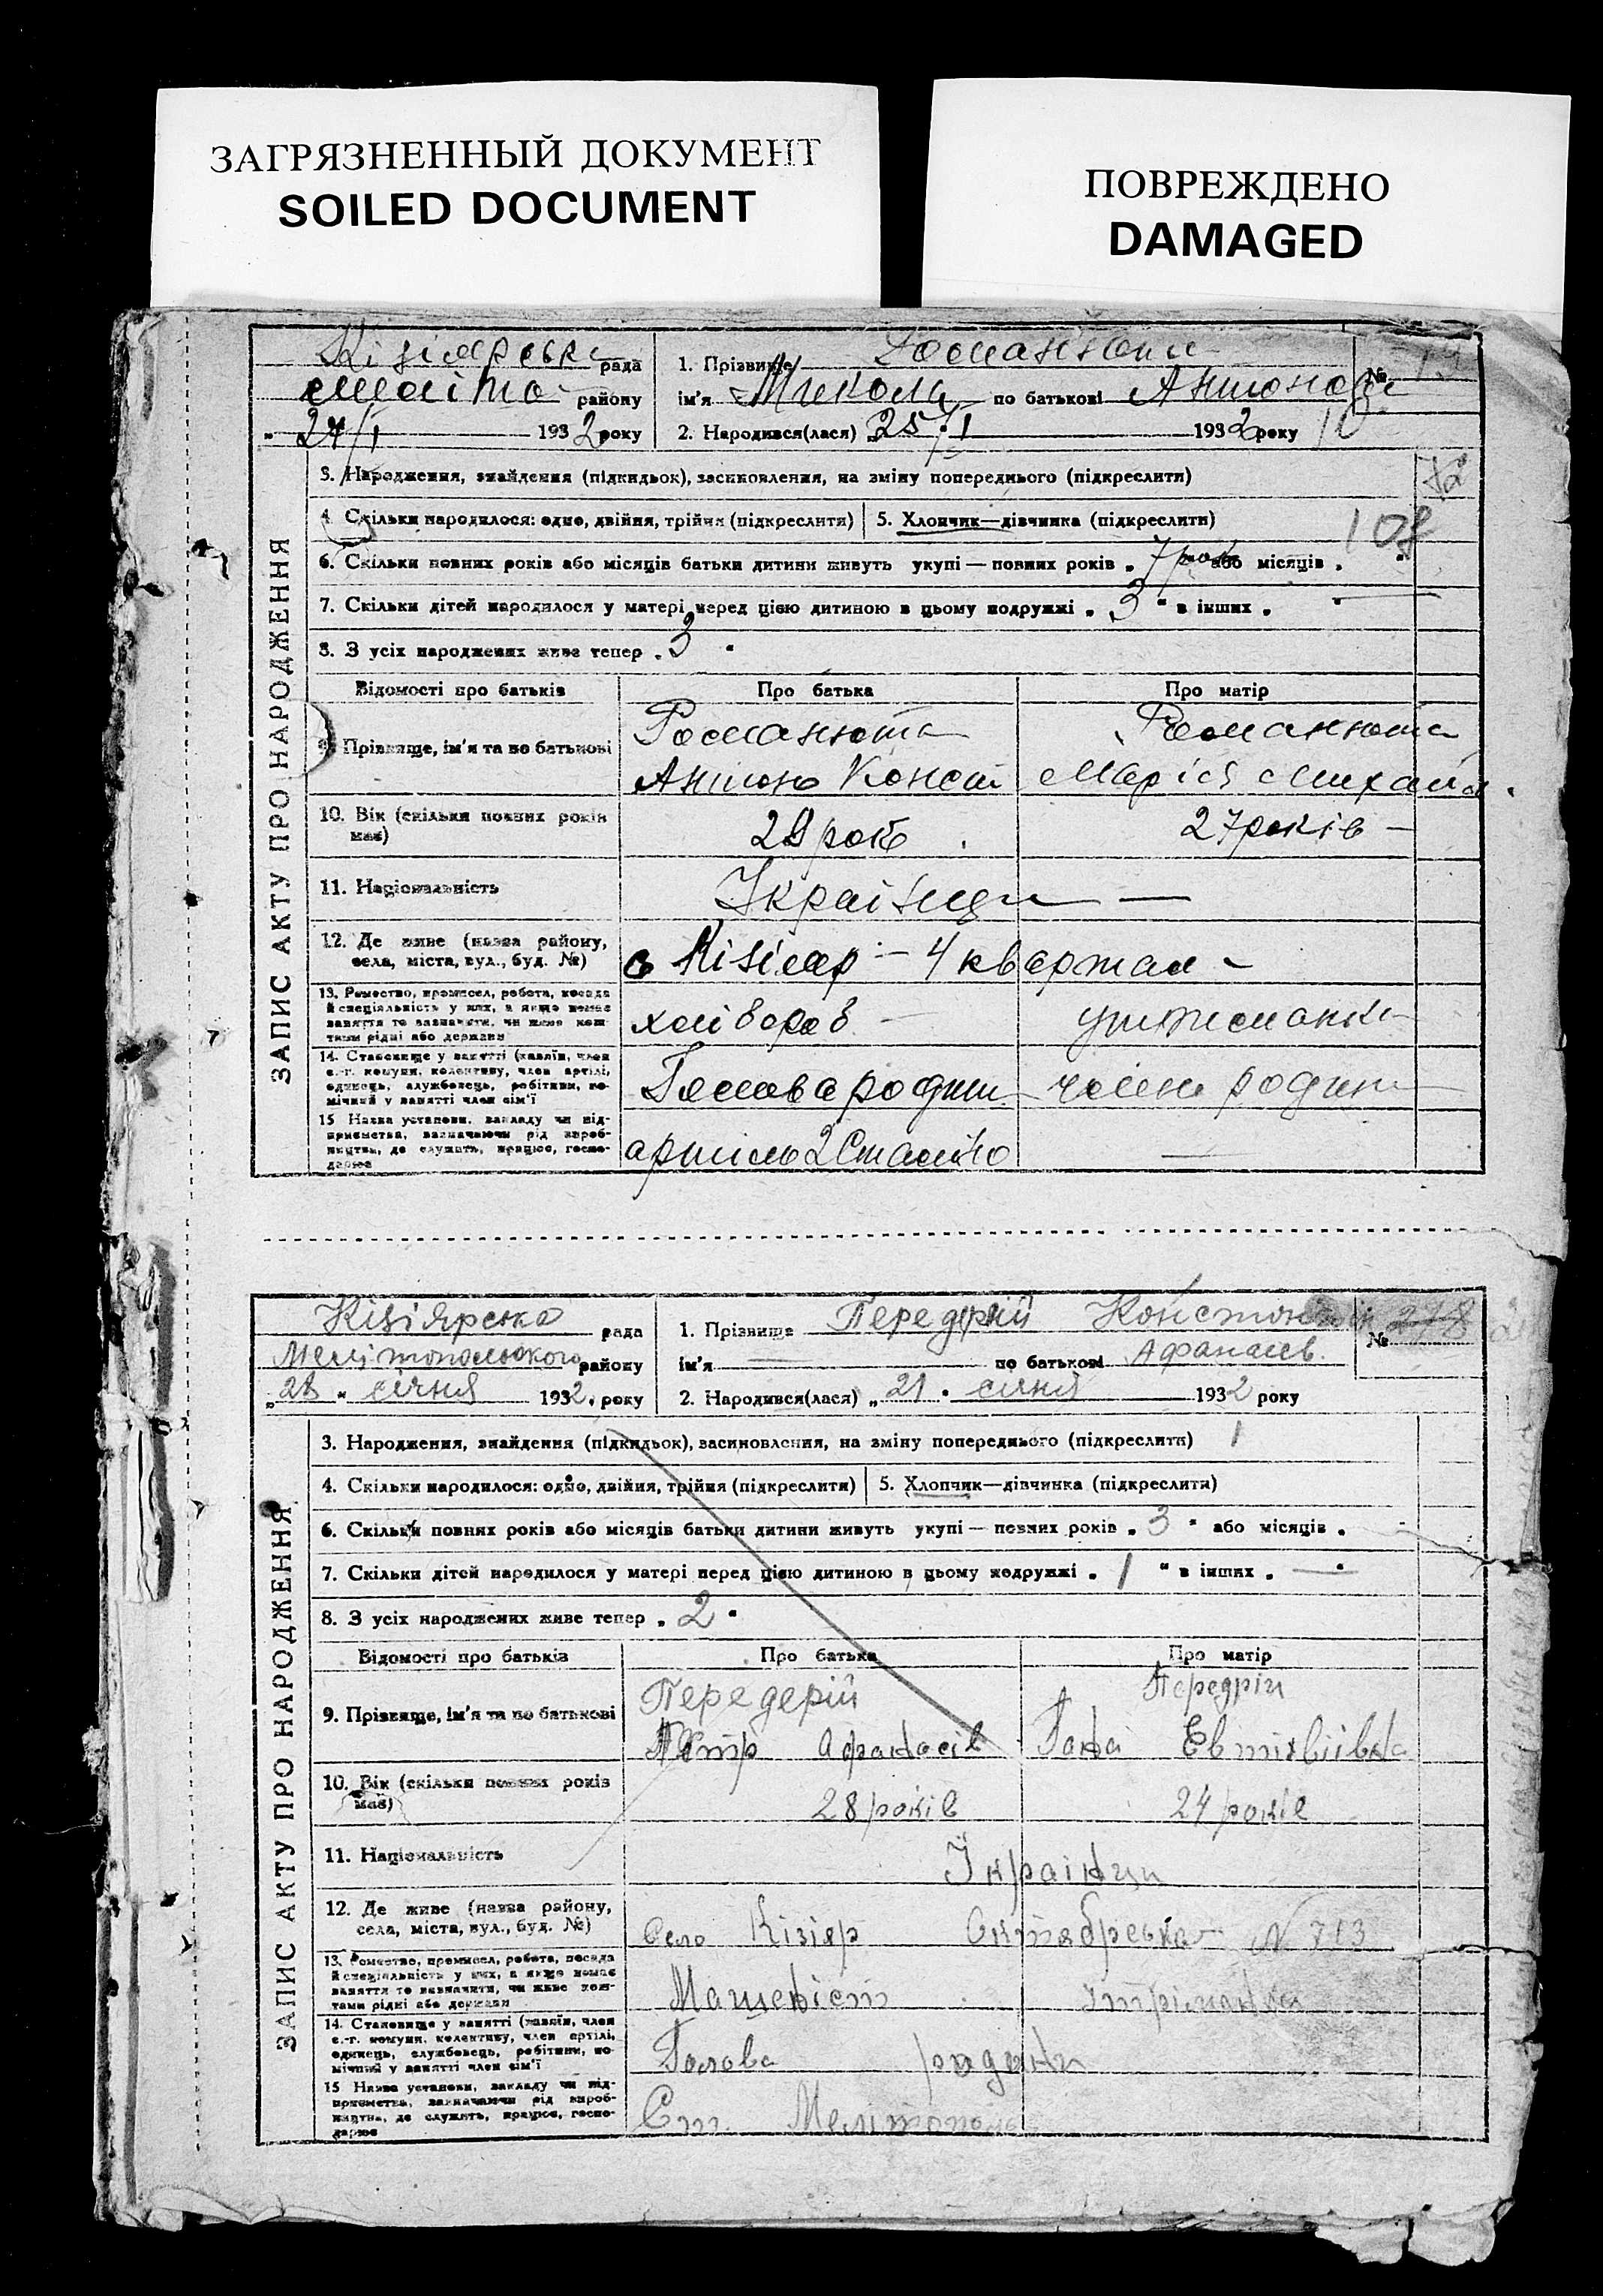 ЗАГРЯЗНЕННЫЙ ДОКУМЕНТ
SOILED DOCUMENT
ПОВРЕЖДЕНО
DAMAGED
ЗАПИС АКТУ ПРО НАРОДЖЕННЯ
Кізіярська рада
району
27/I 1932 року
1. Прізвище Романюта
ім'я Микола по батькові Антонов №
2. Народився(лася) „25/I 1932 року 10
3. Народження, знайдення (підкидьок), засиновлення, на зміну попереднього (підкреслити)
4. Скільки народилося: одно, двійня, трійня (підкреслити) 5. Хлопчик—дівчинка (підкреслити)
107
6. Скільки повних років або місяців батьки дитини живуть укупі — повних років „ 7 рок або місяців „
7. Скільки дітей народилося у матері перед цією дитиною в цьому подружжі „ 3 “ в інших „ “
8. З усіх народжених живе тепер „ 3 “
Відомості про батьків Про батька Про матір
9. Прізвище, ім'я та по батькові Романюта Романюта
Антон Конст Марія Михайл.
10. Вік (скільки повних років має) 29 рок. 27 років —
11. Національність Українци —
12. Де живе (назва району, села, міста, вул., буд. №) с Кізіяр — 4 квартал —
13. Ремество, промисел, робота, посада й спеціяльність у них, а якщо немає заняття то зазначити, чи живе коштами рідні або держави хлібороб — утриманка
14. Становище у занятті (хазяїн, член с.-г. комуни, колективу, член артілі, одинець, службовець, робітник, помічний у занятті член сім'ї Голова родини член родини
15 Назва установи, закладу чи підприємства, зазначаючи рід виробництва, де служить, працює, господарює артиль 2 Сталіно —
ЗАПИС АКТУ ПРО НАРОДЖЕННЯ
Кізіярська рада
Мелітопольского району
„28 “ січня 1932 року
1. Прізвище Передерій Констонтин № 278
ім'я — по батькові Афанасів.
2. Народився(лася) „ 21 “ січня 1932 року
3. Народження, знайдення (підкидьок), засиновлення, на зміну попереднього (підкреслити) 1
4. Скільки народилося: одно, двійня, трійня (підкреслити) 5. Хлопчик—дівчинка (підкреслити)
6. Скільки повних років або місяців батьки дитини живуть укупі — повних років „ 3 “ або місяців „ -
7. Скільки дітей народилося у матері перед цією дитиною в цьому подружжі „ 1 “ в інших „ — “
8. З усіх народжених живе тепер „ 2 “
Відомості про батьків Про батька Про матір
9. Прізвище, ім'я та по батькові Передерій Передрій
Петр Афанасів Ганa Евтихвіівна
10. Вік (скільки повних років має) 28 років 24 років
11. Національність Українци
12. Де живе (назва району, села, міста, вул., буд. №) Село Кізіяр Октябреська N 713
13. Ремество, промисел, робота, посада й спеціяльність у них, а якщо немає заняття то зазначити, чи живе коштами рідні або держави Машеніст утріманка
14. Становище у занятті (хазяїн, член с.-г. комуни, колективу, член артілі, одинець, службовець, робітник, помічний у занятті член сім'ї Голова родини
15 Назва установи, закладу чи підприємства, зазначаючи рід виробництва, де служить, працює, господарює Ст. Мелітополь